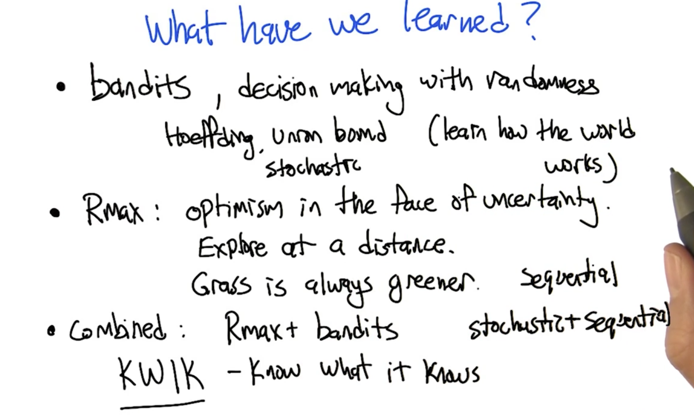 What have we learned?
• bandits, decision making with randomness
Hoeffding, Union bound (learn how the world
stochastic works)
• Rmax: optimism in the face of uncertainty.
Explore at a distance.
Grass is always greener. Sequential
• Combined: Rmax + bandits stochastic + sequential
KWIK - Know what it knows